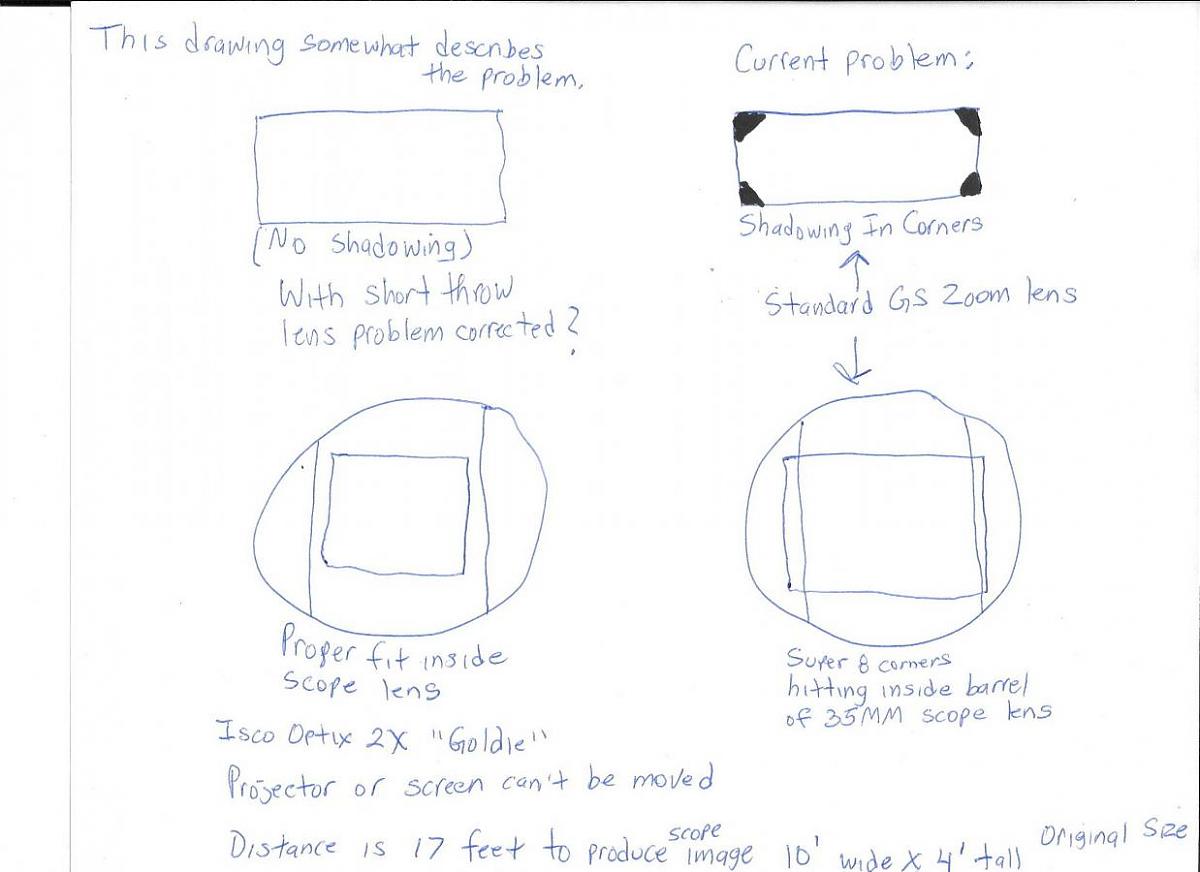 This drawing somewhat describes
the problem.
Current problem:
(No Shadowing)
With short throw
lens problem corrected?
Shadowing In Corners
Standard GS Zoom lens
Proper fit inside
scope lens
Super 8 corners
hitting inside barrel
of 35MM scope lens
Isco Optix 2X "Goldie"
Projector or screen can't be moved
Distance is 17 feet to produce scope image 10' wide X 4' tall Original Size